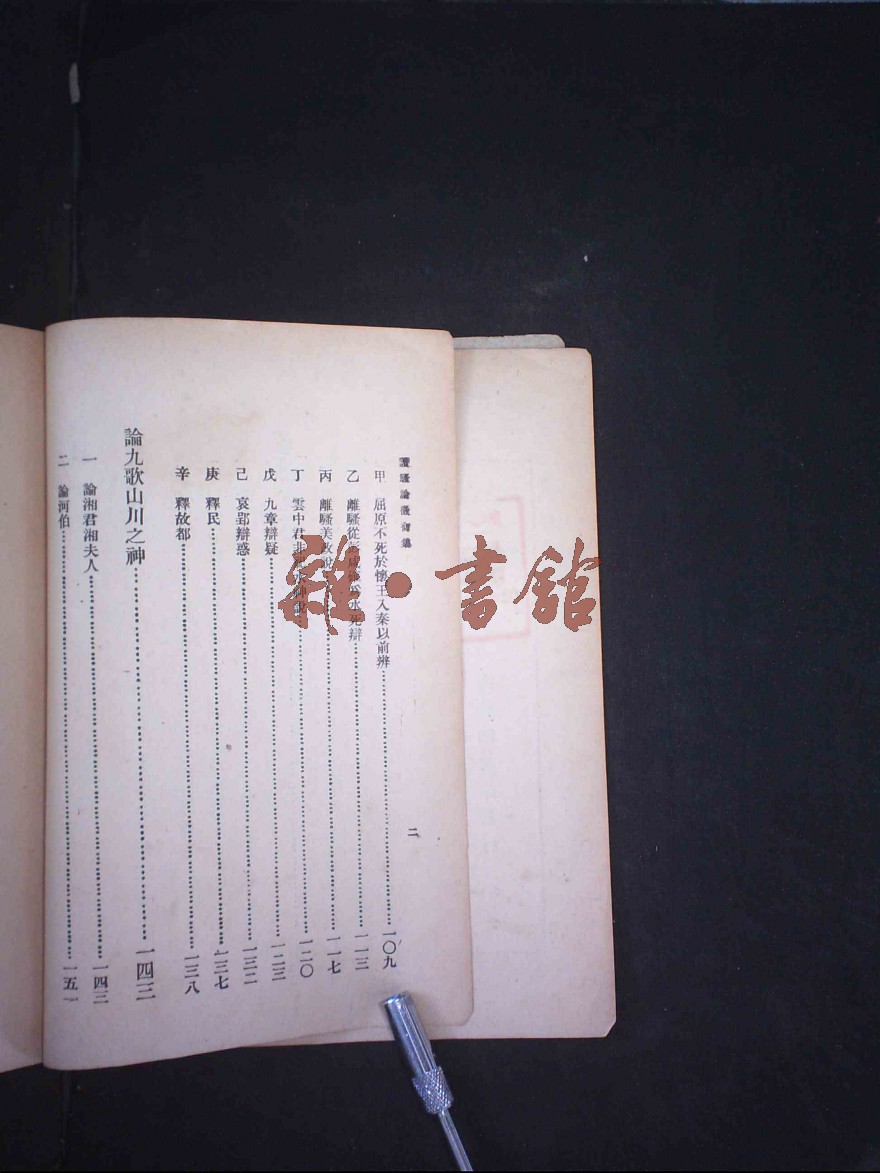 讀騷論微初集
甲 屈原不死於懷王入秦以前辨 一〇九
乙 離騷從彭咸 爲水死辯 一一三
丙 離騷美政說 一一七
丁 雲中君非 水神說 一二〇
戊 九章辯疑 一二三
己 哀郢辯惑 一三二
庚 釋民 一三七
辛 釋故都 一三八
論九歌山川之神 一四三
一 論湘君湘夫人 一四三
二 論河伯 一五一
二
雜·書館